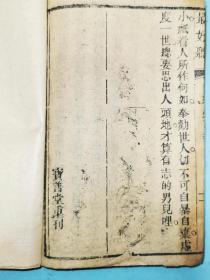 最好聽
小㕔看人所作何如奉勸世人切不可自暴自棄虛
度一世總要思出人頭地才算有志的男兒哩
寶善堂重刊